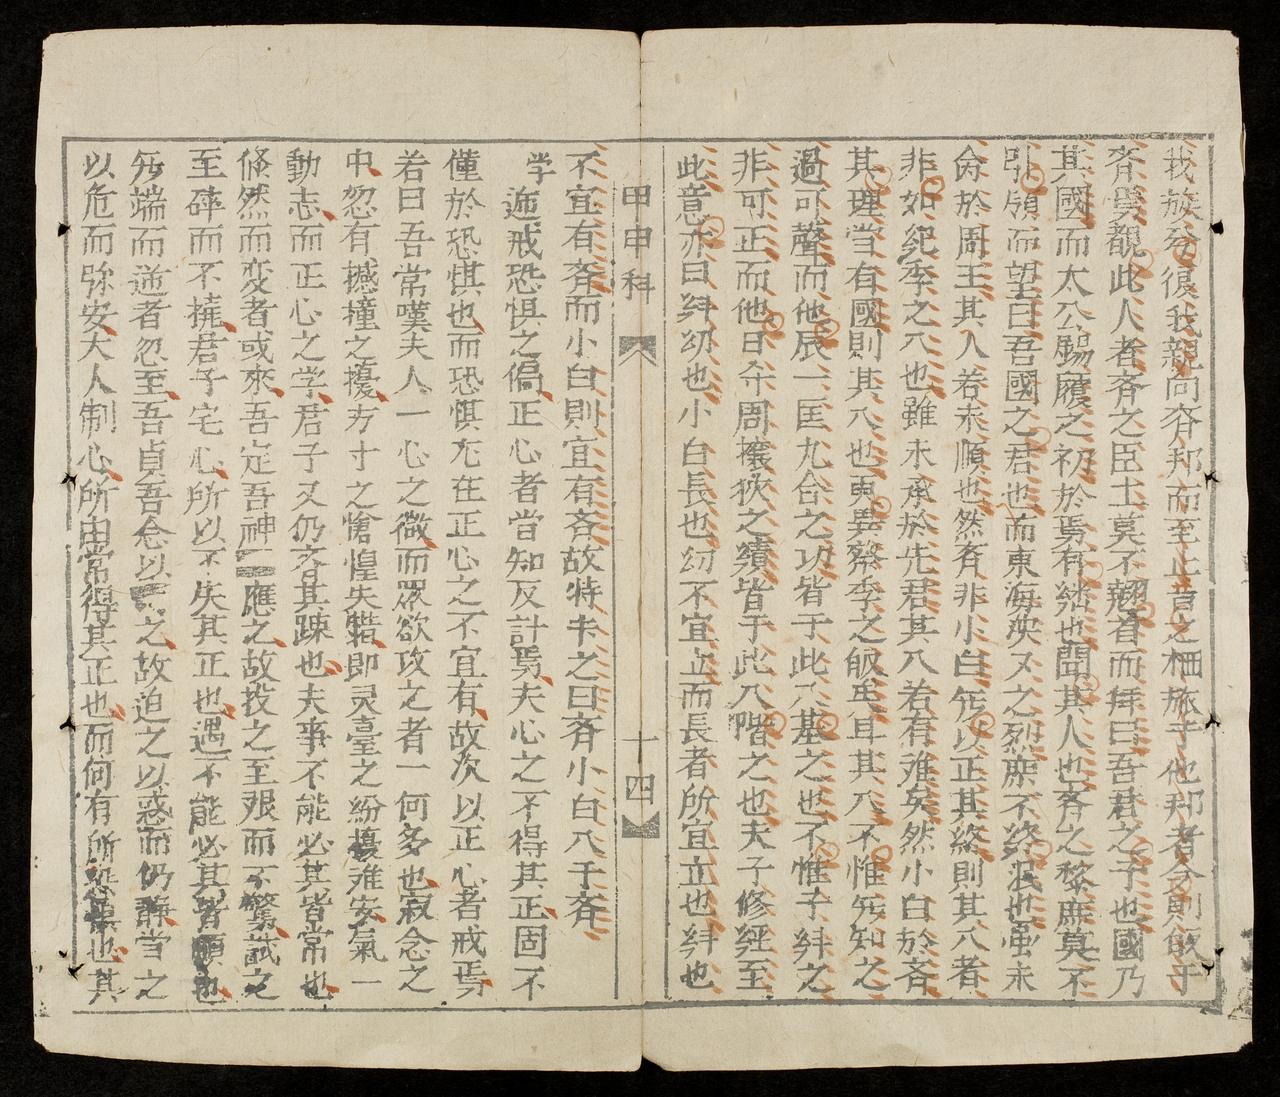 我族兮復我親向斉邦而至止昔之栖旅于他邦者今則皈于
斉焉觀此人者斉之臣士莫不翹首而拜曰吾君之子也國乃
其國而太公賜履之初於焉有繼也聞其人也斉之黎庶莫不
引領而望曰吾國之君也而東海泱又之烈庶不終泯也虽未
命於周王其入若未順也然斉非小白無以正其終則其入者
非如紀季之入也雖未承於先君其入若有难矣然小白於斉
其理当有國則其入也更異蔡季之皈焉耳其入不惟無知之
過可声而他辰一匡九合之功皆于此入基之也不惟子糾之
非可正而他日夲周攘狄之績皆于此入階之也夫子修經至
此意亦曰糾幼也小白長也幼不宜立而長者所宜立也糾也
甲申科
十四
不宜有斉而小白則宜有斉故特书之曰斉小白入于斉
学 迩戒恐惧之偏正心者當知反計焉夫心之不得其正固不
僅於恐惧也而恐惧尤在正心之不宜有故次以正心者戒焉
若曰吾常嘆夫人一心之微而眾欲攻之者一何多也寂念之
中忽有撼撞之擾方寸之愴惶失錯即灵臺之紛擾难安氣一
動志而正心之学君子又仍斉其踈也夫事不能必其皆常也
倏然而変者或來吾定吾神 應之故投之至艰而不驚試之
至碎而不撓君子宅心所以不失其正也遇不能必其皆順也
無端而逆者忽至吾貞吾念以 之故迫之以惑而仍靜当之
以危而弥安大人制心所由常得其正也而何有所恐惧也其